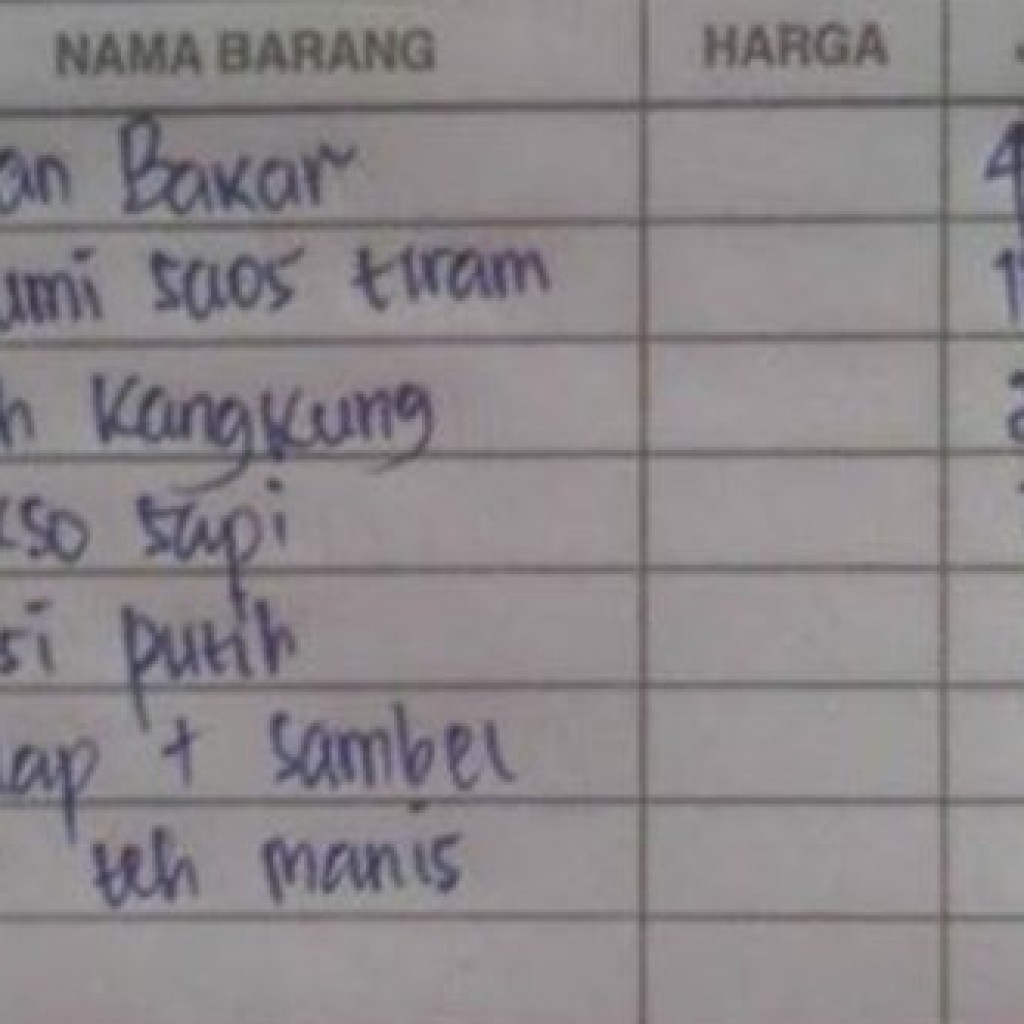 NAMA BARANG HARGA
an Bakar 4
umi saos tiram 1
h Kangkung 2
kso sapi
si putih
lap + sambel
teh manis